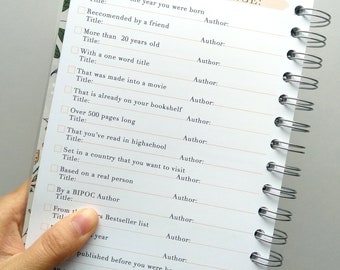 e year you were born
Title: Author:
Reccomended by a friend
Title: Author:
More than 20 years old
Title: Author:
With a one word title
Title: Author:
That was made into a movie
Title: Author:
That is already on your bookshelf
Title: Author:
Over 500 pages long
Title: Author:
That you've read in highschool
Title: Author:
Set in a country that you want to visit
Title: Author:
Based on a real person
Title: Author:
By a BIPOC Author
Title: Author:
From th s Bestseller list
Author:
year
Author:
published before you were b